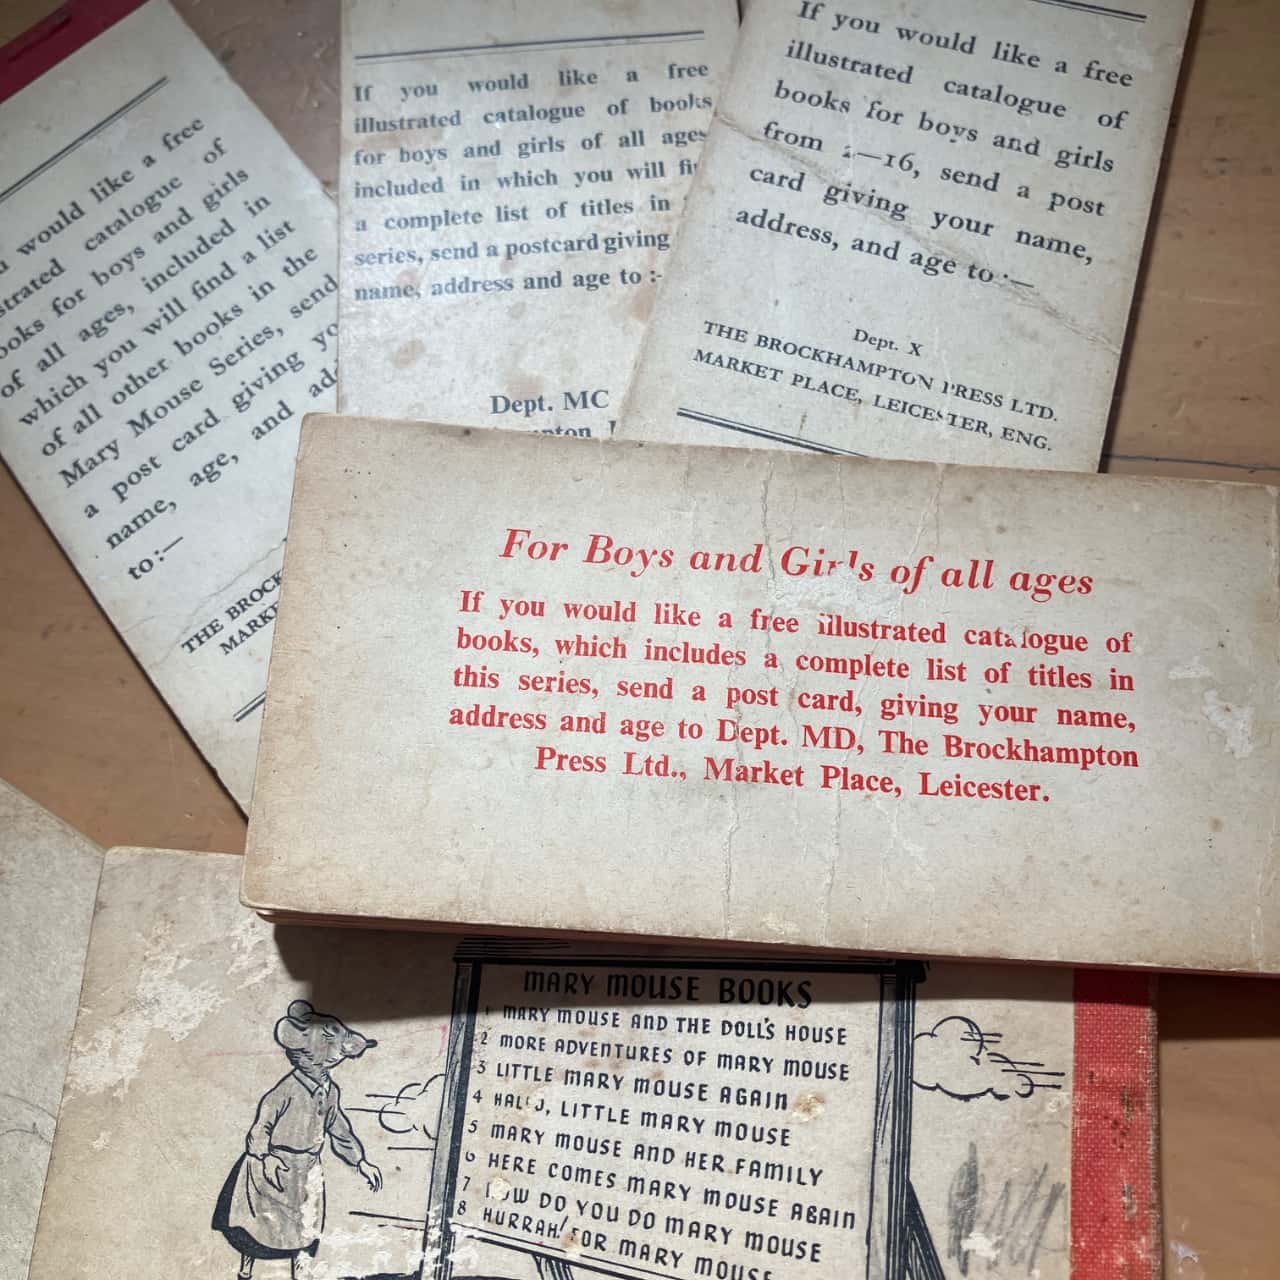 would like a free
strated catalogue of
ooks for boys and girls
of all ages, included in
which you will find a list
of all other books in the
Mary Mouse Series, send
a post card giving yo
name, age, and ad
to:—
THE BROCK
MARKE
If you would like a free
illustrated catalogue of books
for boys and girls of all ages
included in which you will fi
a complete list of titles in
series, send a postcard giving
name, address and age to :-
Dept. MC
If you would like a free
illustrated catalogue of
books for boys and girls
from —16, send a post
card giving your name,
address, and age to:—
Dept. X
THE BROCKHAMPTON PRESS LTD.
MARKET PLACE, LEICESTER, ENG.
For Boys and Girls of all ages
If you would like a free illustrated catalogue of
books, which includes a complete list of titles in
this series, send a post card, giving your name,
address and age to Dept. MD, The Brockhampton
Press Ltd., Market Place, Leicester.
MARY MOUSE BOOKS
1 MARY MOUSE AND THE DOLL'S HOUSE
2 MORE ADVENTURES OF MARY MOUSE
3 LITTLE MARY MOUSE AGAIN
4 HALLO, LITTLE MARY MOUSE
5 MARY MOUSE AND HER FAMILY
6 HERE COMES MARY MOUSE AGAIN
7 HOW DO YOU DO MARY MOUSE
8 HURRAH! FOR MARY MOUSE